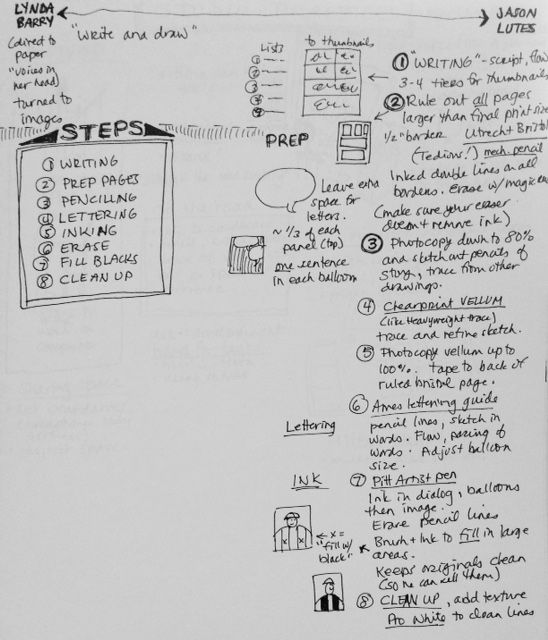 LYNDA BARRY
"Write and draw"
JASON LUTES
(direct to
paper
"voices in
her head)
turned to
images
STEPS
① WRITING
② PREP PAGES
③ PENCILLING
④ LETTERING
⑤ INKING
⑥ ERASE
⑦ FILL BLACKS
⑧ CLEAN UP
Lists
to thumbnails
PREP
Leave extra
space for
letters.
~ 1/3 of each
panel (top)
one sentence
in each balloon
① "WRITING" - script, flow
3-4 tiers for thumbnails
② Rule out all pages
larger than final print size
1/2" border Utrecht Bristol
(Tedious!) mech. pencil
Inked double lines on all
borders. Erase w/ magic era
(make sure your eraser
doesn't remove ink)
③ Photocopy down to 80%
and sketch out pencils of
story, trace from other
drawings.
④ Clearprint VELLUM
(like heavyweight trace)
trace and refine sketch.
⑤ Photocopy vellum up to
100%. tape to back of
ruled bristol page.
Lettering
⑥ Ames lettering guide
pencil lines, sketch in
words. Flow, pacing of
words. Adjust balloon
size.
INK
⑦ Pitt Artist pen
Ink in dialog, balloons
then image.
Erase pencil lines
Brush + Ink to fill in large
areas.
Keeps originals clean
(so he can sell them)
x =
"fill w/
black"
⑧ CLEAN UP, add texture
Pro White to clean lines